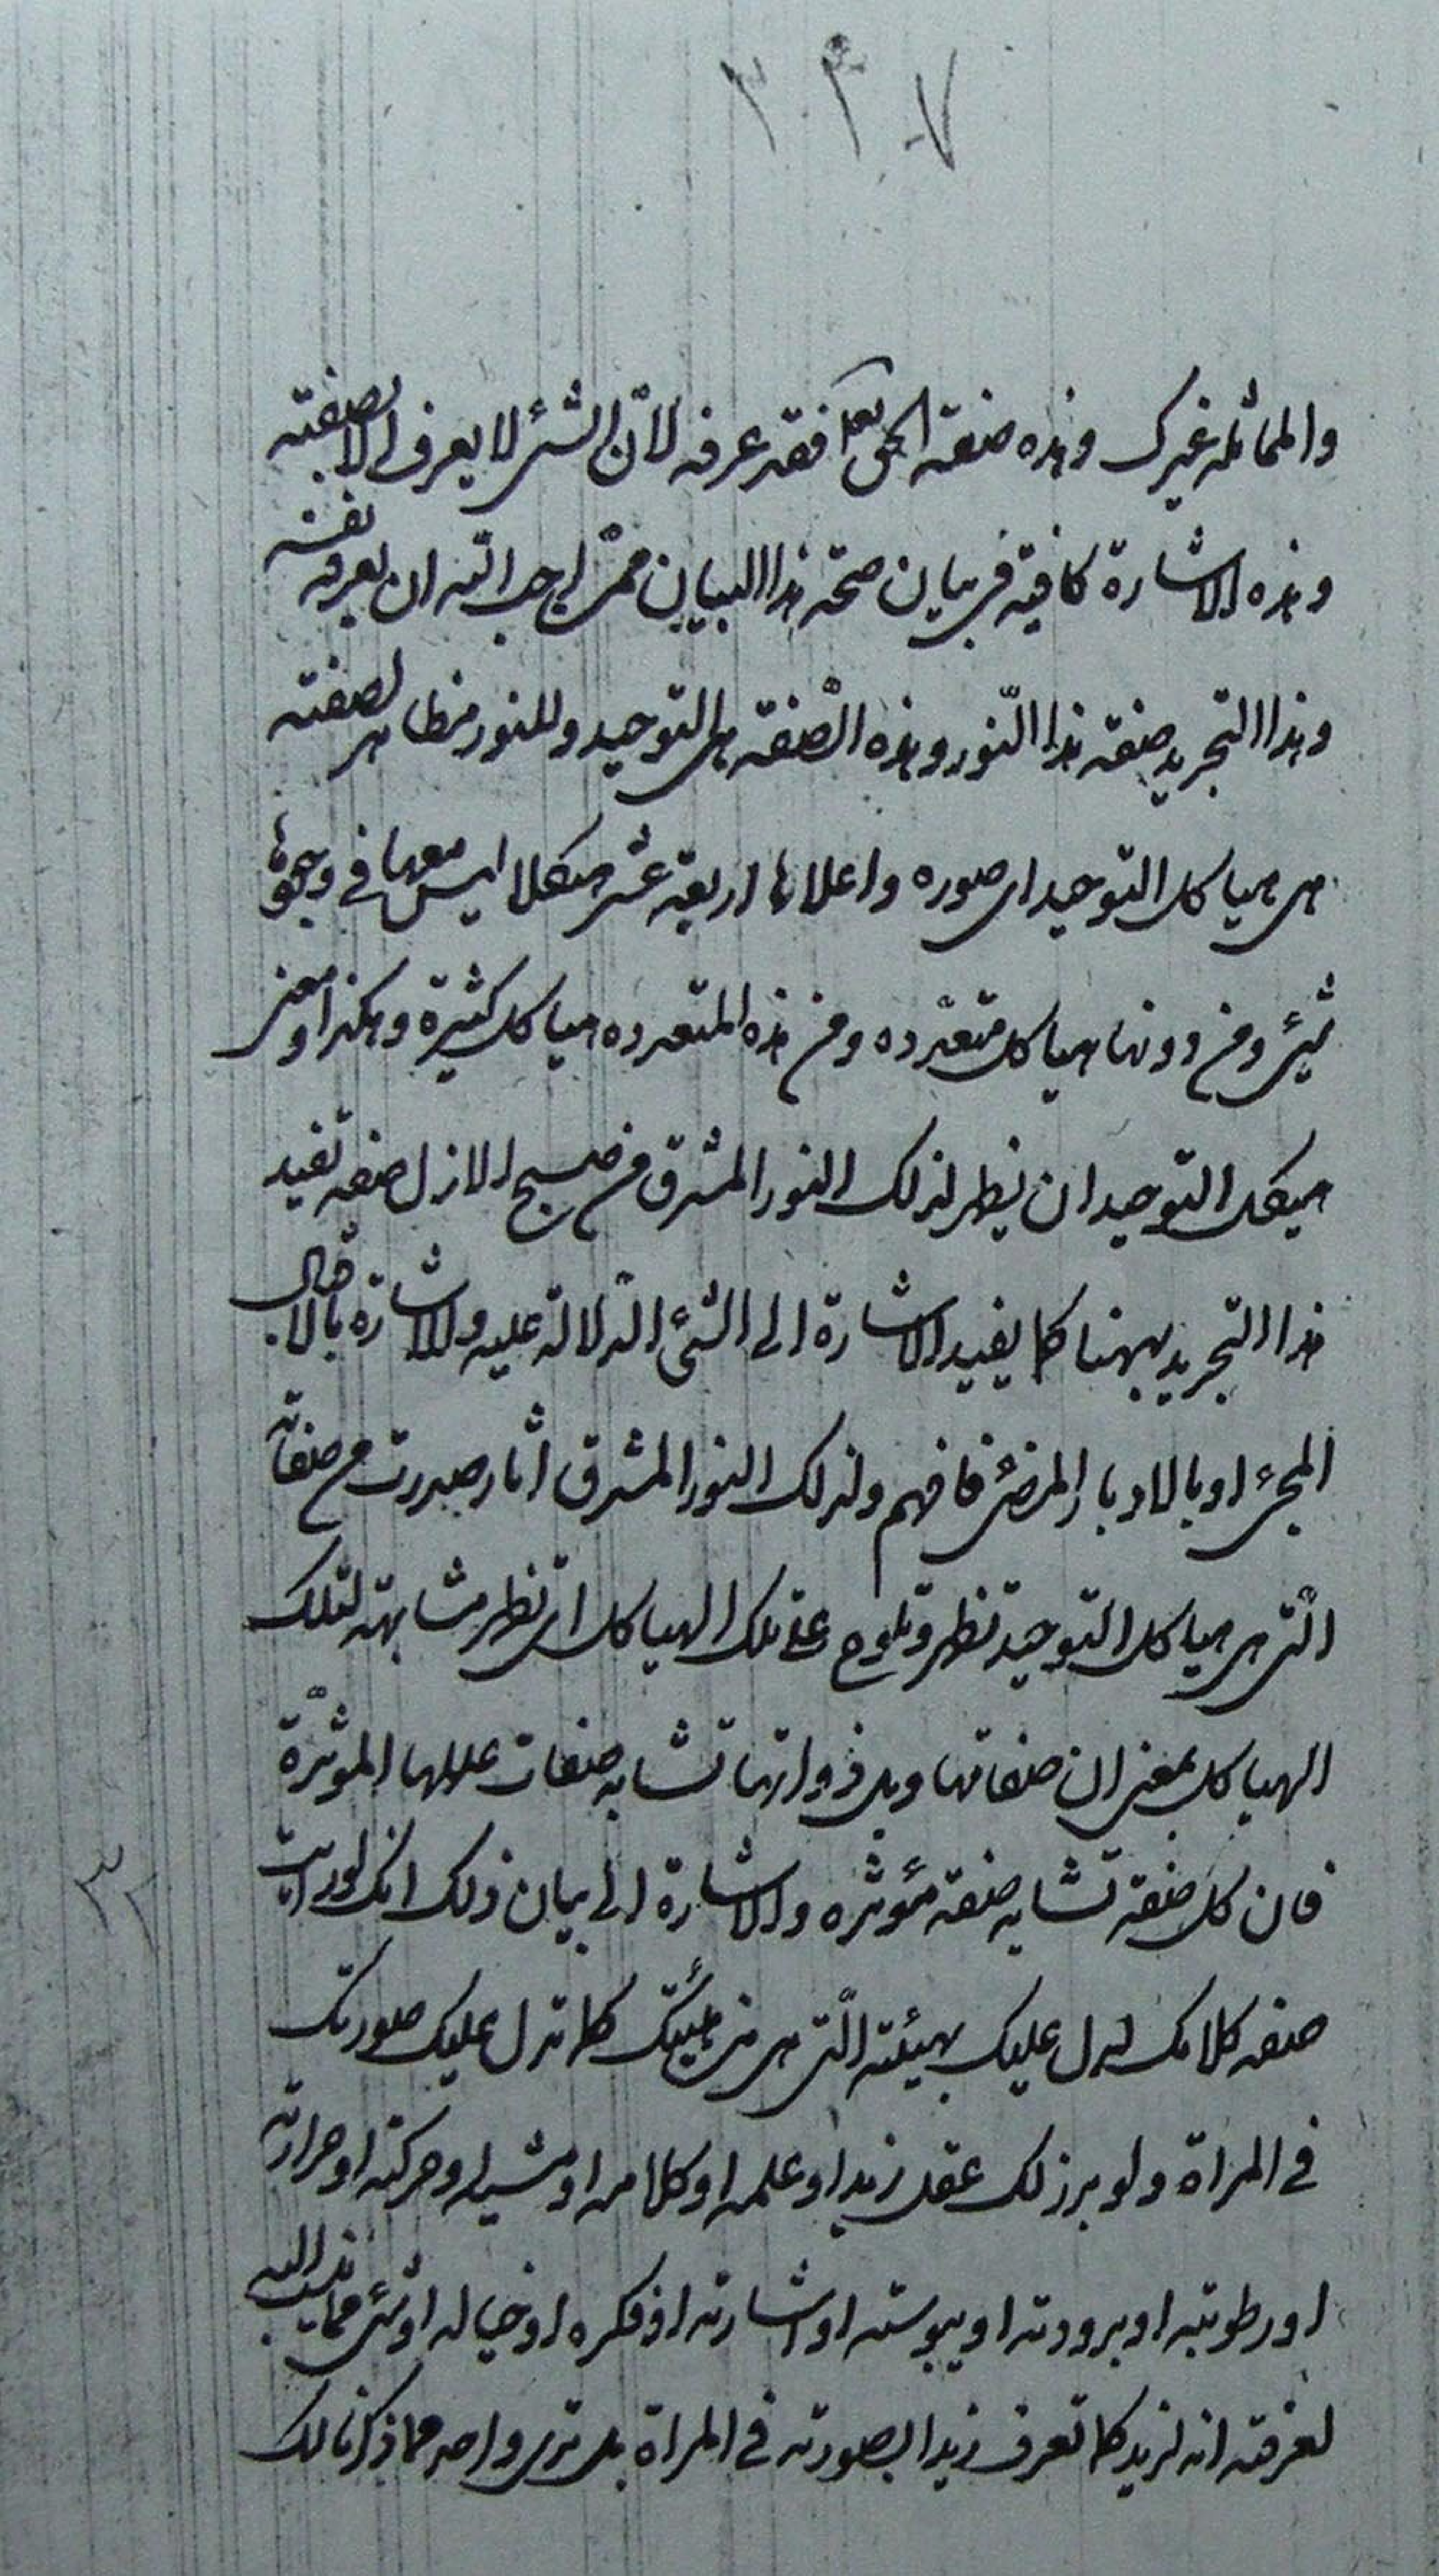 ٣٤٧
والمماثله غيرك وهذه صفته الحق تعا فقد عرفه لانّ الشئ لا يعرف الا بصفته
وهذه الاشارة كافية فى بيان صحة هذا البيان ممّن احب الله ان يعرفه نفسه
وهذا التجريد صفة هذا النّور وهذه الصّفة هى التوحيد وللنور مظاهر لصفته
هى هياكل التوحيد اى صوره واعلاها اربعة عشر هيكلا ليس معها فى وجوهها
شئ ومن دونها هياكل متعدّده ومن هذه المتعدده هياكل كثيرة وهكذا ومعنى
هيكل التوحيد ان يظهر لذلك النور المشرق من صبح الازل صفه تفيد
هذا التجريد يهمنا كما يفيد الاشارة الى الشئ الدّلالة عليه والاشارة بالاقبال
المجئ او بالادبار المضئ فافهم ولذلك النور المشرق اثار صدرت من صفاته
الّتى هى هياكل التوحيد تظهر وتلوح على تلك الهياكل اى تظهر مشابهة لتلك
الهياكل بمعنى ان صفاتها وبل ذواتها تشابه صفات عللها المؤثرّة
فان كل صفة تشابه صفة مؤثره والاشارة الى بيان ذلك انك لو رايت
صفه كلامك لدل عليك بهيئته الّتى هى من هيئتك كما تدل عليك صورتك
فى المراة ولو برز لك عقل زيد او علمه او كلامه او مشيه او حركته او حرارته
او رطوبته او برودته او يبوسته او اشارته او فكره او خياله او شئ مما ينسب اليه
لعرفته انه لزيد كما تعرف زيدا بصورته فى المراة بل ترى واحد مما ذكرنا لك
٣٢